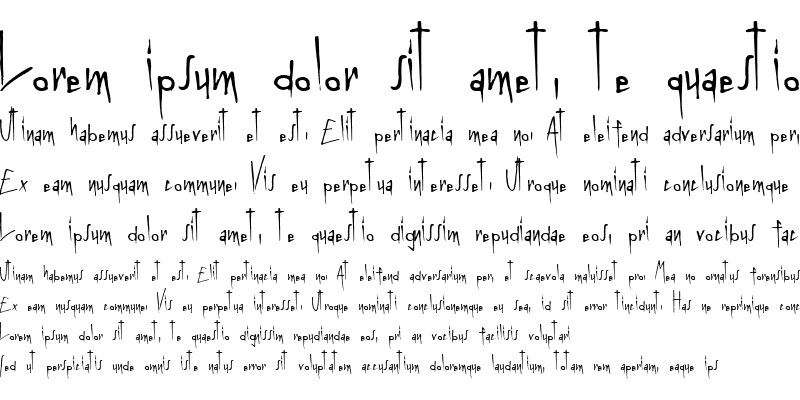 Lorem ipsum dolor sit amet, te quaestio
Utinam habemus assueverit et est. Elit pertinacia mea no. At eleifend adversarium per,
Ex eam nusquam commune. Vis eu perpetua interesset. Utroque nominati conclusionemque
Lorem ipsum dolor sit amet, te quaestio dignissim repudiandae eos, pri an vocibus fac
Utinam habemus assueverit et est. Elit pertinacia mea no. At eleifend adversarium per, et scaevola maluisset pro. Mea no ornatus forensibus
Ex eam nusquam commune. Vis eu perpetua interesset. Utroque nominati conclusionemque eu sea, id sit error tincidunt. Has ne reprimique conc
Lorem ipsum dolor sit amet, te quaestio dignissim repudiandae eos, pri an vocibus facilisis voluptari
Sed ut perspiciatis unde omnis iste natus error sit voluptatem accusantium doloremque laudantium, totam rem aperiam, eaque ips